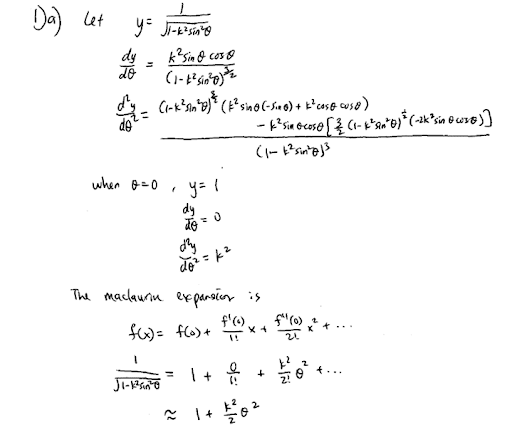 1)a) Let y = 1/√(1-k²sin²θ)
dy/dθ = k²sinθ cosθ / (1-k²sin²θ)^(3/2)
d²y/dθ² = [(1-k²sin²θ)^(3/2) (k²sinθ(-sinθ) + k²cosθ cosθ) - k²sinθcosθ[3/2 (1-k²sin²θ)^(1/2) (-2k²sinθcosθ)]] / (1-k²sin²θ)³
when θ=0, y=1
dy/dθ = 0
d²y/dθ² = k²
The maclaurin expansion is
f(x) = f(0) + f'(0)/1! x + f''(0)/2! x² + ...
1/√(1-k²sin²θ) = 1 + 0/1! + k²/2! θ² + ...
≈ 1 + k²/2 θ²